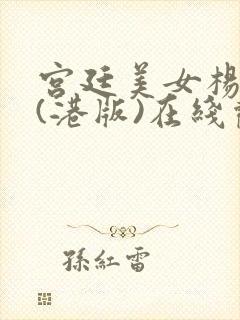 宫廷美女楊
(港版)在綫
孫紅雷